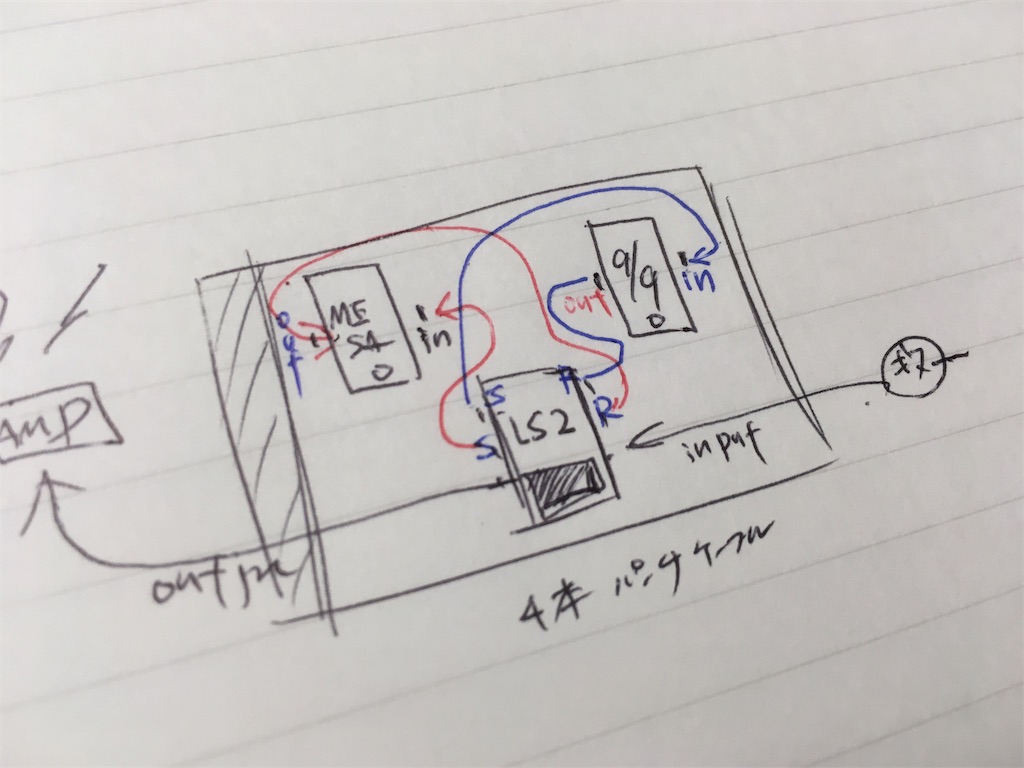 9/9
in
out
ME
SA
out
in
S
R
LS2
S
R
input
AMP
output
4本 パッチケーブル